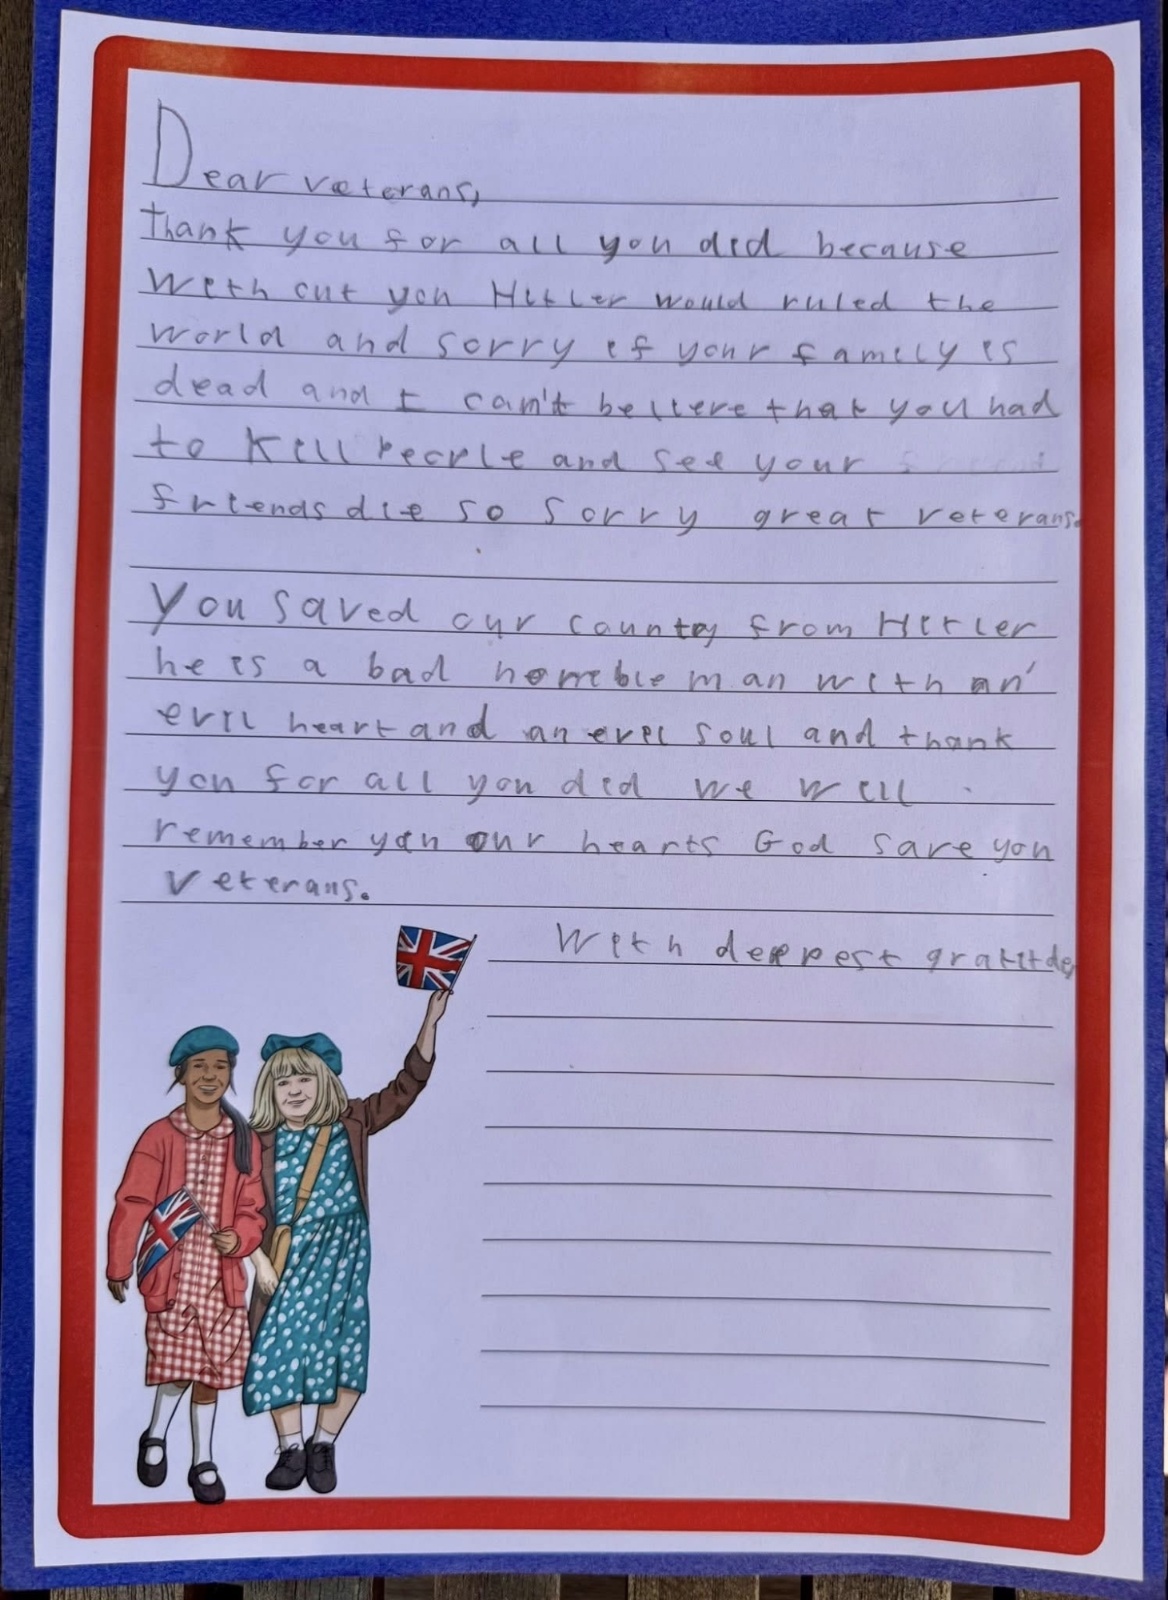 Dear veterans,
thank you for all you did because
with out you Hitler would ruled the
world and sorry if your family is
dead and I can't believe that you had
to kill people and see your
friends die so sorry great veterans.
You saved our country from Hitler
he is a bad horrible man with an'
evil heart and an evil soul and thank
you for all you did we will
remember you our hearts God save you
veterans.
With deepest gratitde,